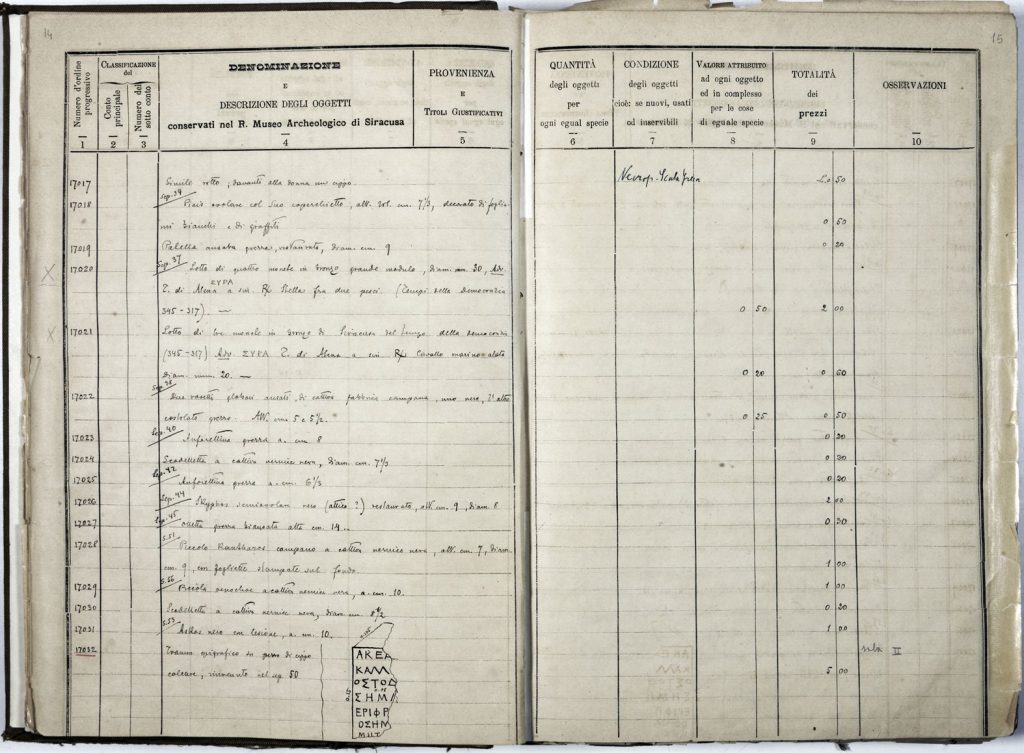 14
Numero d'ordine progressivo
1
CLASSIFICAZIONE del
Conto principale
2
Numero del sotto conto
3
DENOMINAZIONE
E
DESCRIZIONE DEGLI OGGETTI
conservati nel R. Museo Archeologico di Siracusa
4
PROVENIENZA
E
TITOLI GIUSTIFICATIVI
5
17017 Simile rotto; davanti alla donna un cippo
Sep. 34
17018 ovolare col suo coperchietto, alt. cm. 7 1/2, decorato di foglia-
mi bianchi e di graffiti
17019 Patella ansata grezza, restaurata, diam. cm 9
Sep. 37
X 17020 Lotto di quattro monete in bronzo grande modulo, diam. mm. 30, Adv.
T. di Atena a sin. ΣΥΡΑ Rx Stella fra due pesci. (Tempi della Democrazia
345-317). —
X 17021 Lotto di tre monete in bronzo di Siracusa del tempo della democrazia
(345-317) Adv. ΣΥΡΑ T. di Atena a sin. Rx Cavallo marino alato
Diam. mm. 20. —
Sep. 38
17022 Due vasetti globari ansati, di cattiva fabbrica campana, uno nero, l'altro
costolato grezzo. Alt. cm 5 e 5 1/2.
Sep. 40
17023 Anforettina grezza a. cm 8
17024 Scodelletta a cattiva vernice nera, diam. cm. 7
Sep. 42
17025 Anforettina grezza a. cm. 6
Sep. 44
17026 Skyphos nero (attico?) restaurato, alt. cm. 9, diam 8
Sep. 45
17027 grezza biansata alta cm. 14.
S. 51
17028 Piccolo Kantharos campano a cattiva vernice nera, alt. cm. 7, diam
cm. 9, con fogliette stampate sul fondo
S. 56
17029 oenochoe a cattiva vernice nera, a. cm. 10.
17030 Scodelletta a cattiva vernice nera, diam. cm. 8 1/2
S. 53
17031 Askos nero con lesione, a. cm. 10.
17032 epigrafico su pezzo di cippo
calcare, rinvenuto nel 50
ΑΚΕΑ
ΚΑΛΛ
ΟΣΤΟΔ
ΣΗΜ
ΕΡΙΦΡ
ΟΣΗΜ
15
QUANTITÀ
degli oggetti
per
ogni egual specie
6
CONDIZIONE
degli oggetti
cioè: se nuovi, usati
od inservibili
7
VALORE ATTRIBUITO
ad ogni oggetto
ed in complesso
per le cose
di eguale specie
8
TOTALITÀ
dei
prezzi
9
OSSERVAZIONI
10
Necrop. Scala Greca
50
0 50
0 20
0 50 2 00
0 20 0 60
0 25 0 50
0 20
0 20
0 20
2 00
1 00
1 00
0 20
1 00
II
5 00